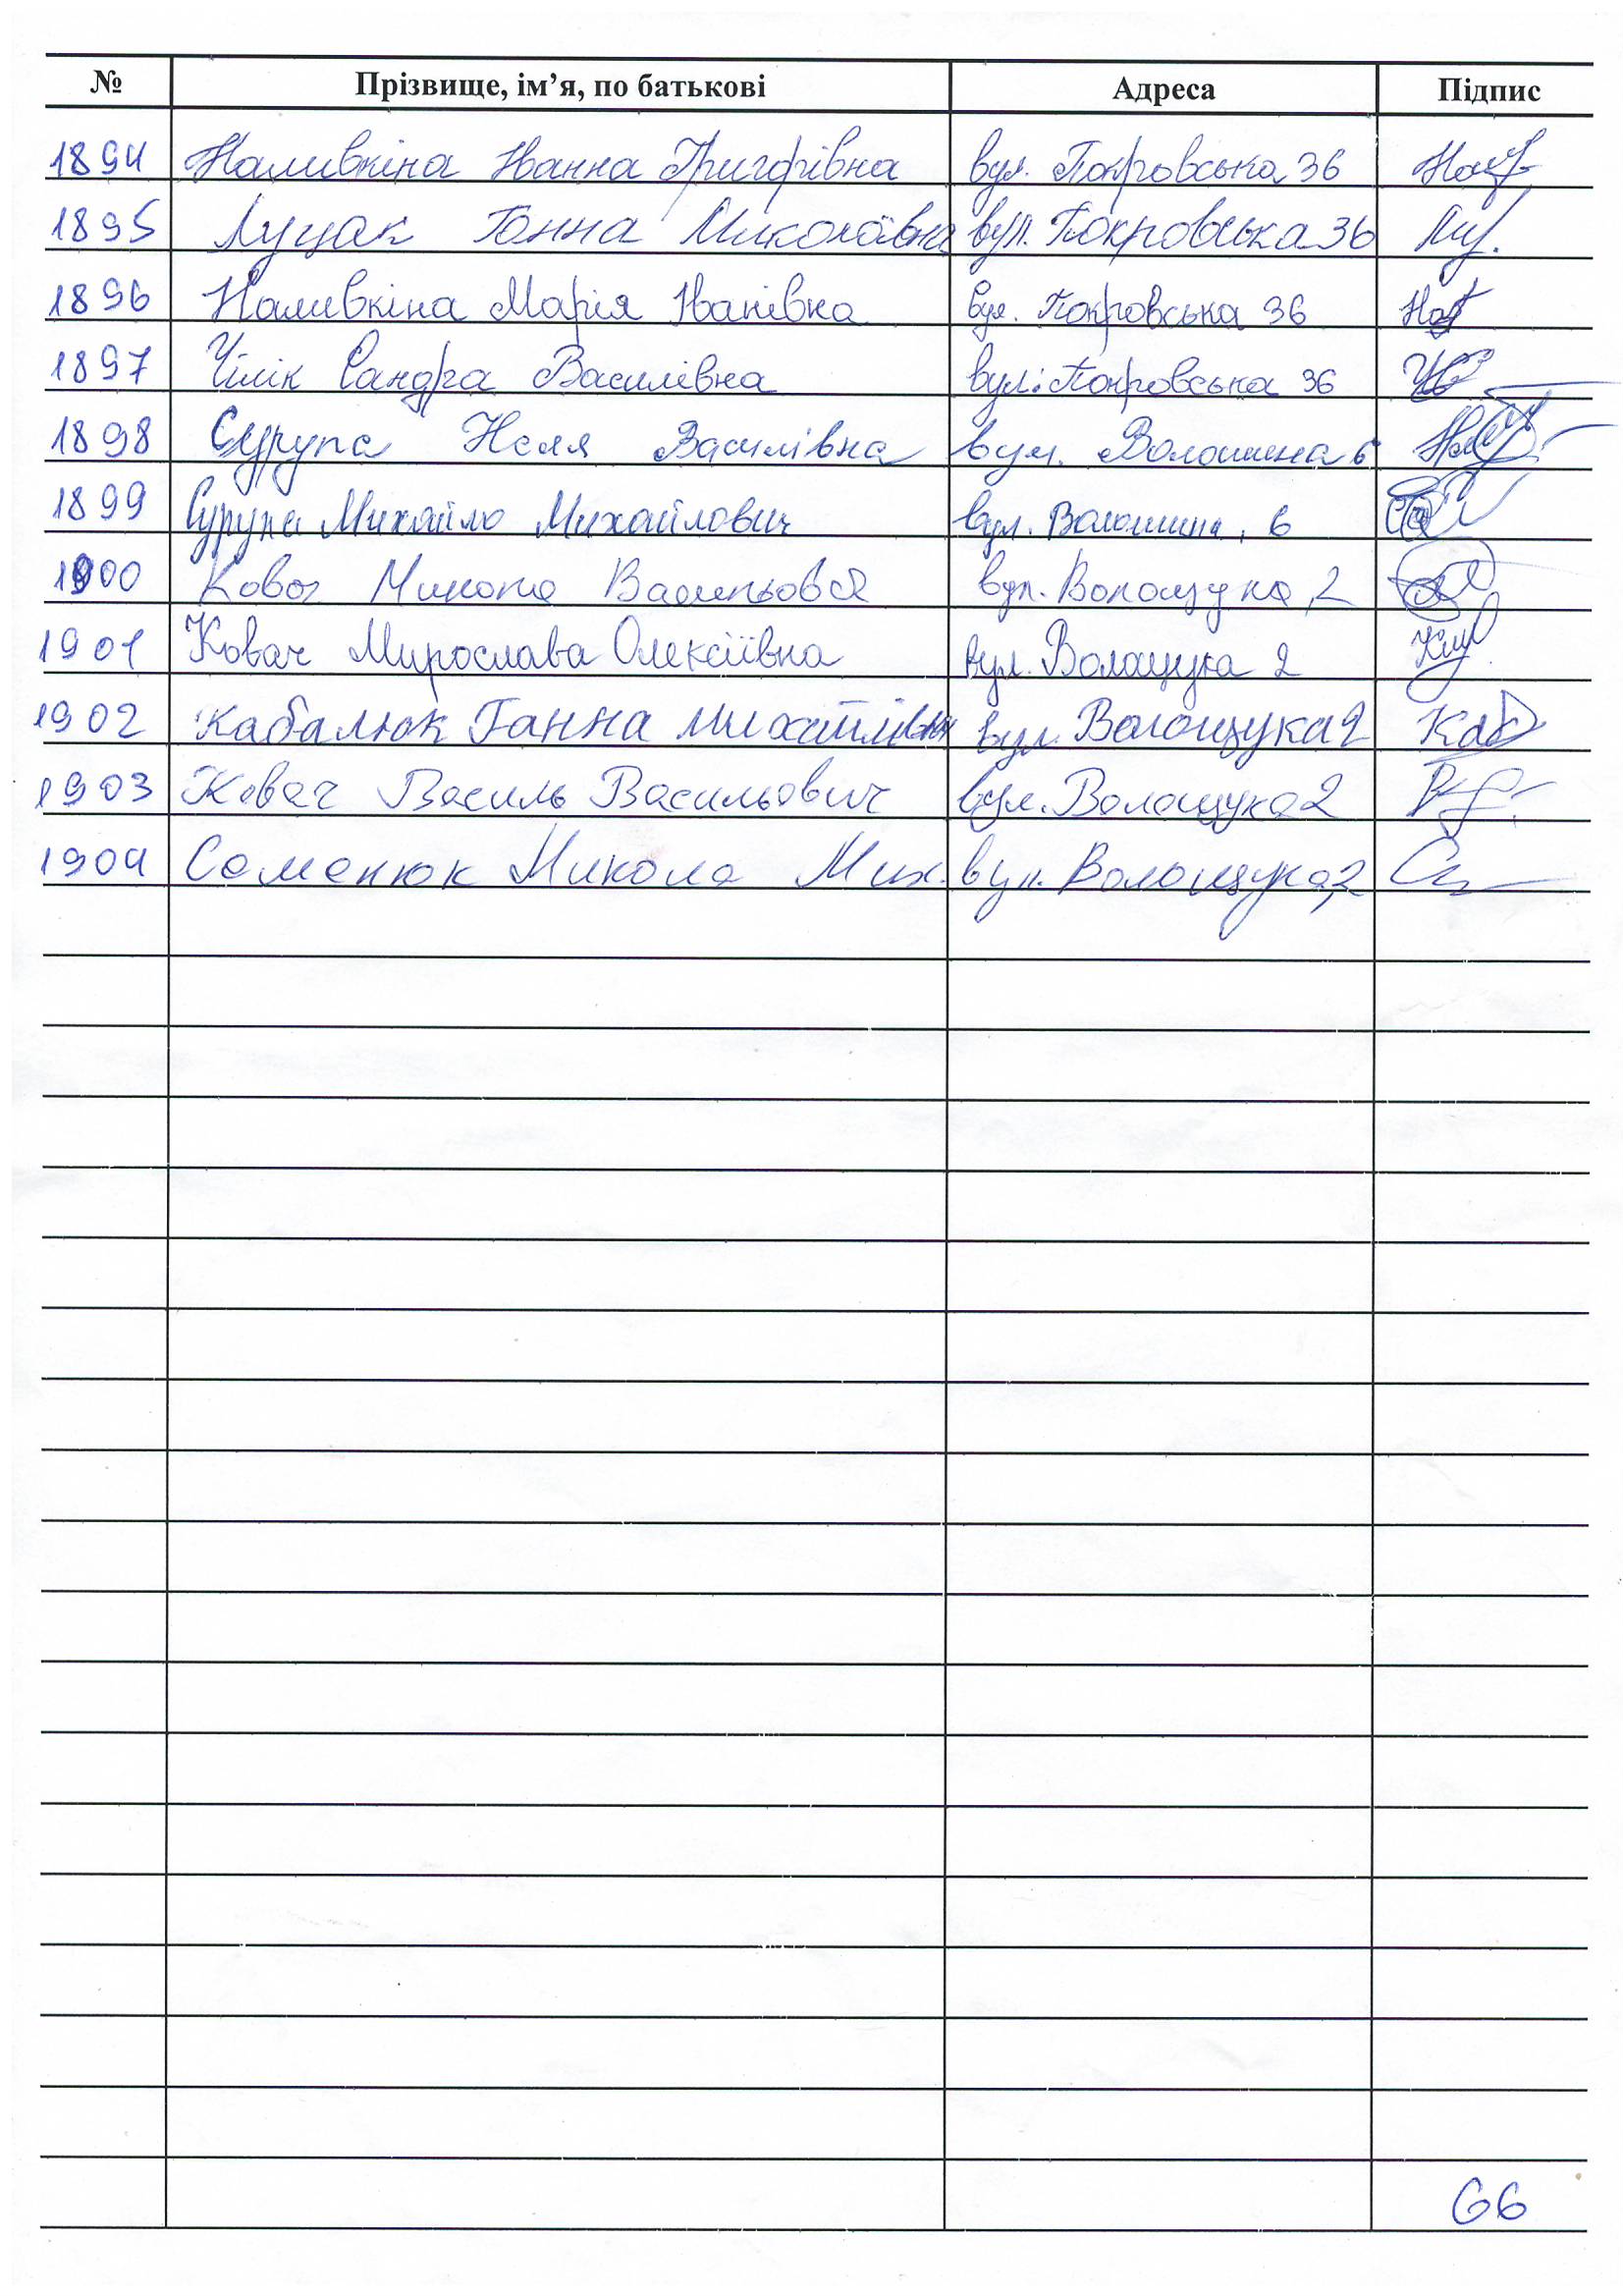 № Прізвище, ім’я, по батькові Адреса Підпис
1894 Наливкіна Іванна Григорівна вул. Покровська 36
1895 Луцак Ганна Миколаївна вул. Покровська 36
1896 Наливкіна Марія Іванівна вул. Покровська 36
1897 Чілік Сандра Василівна вул. Покровська 36
1898 Сурупа Неля Василівна вул. Волошина 6
1899 Сурупа Михайло Михайлович вул. Волошина, 6
1900 Ковач Микола вул. Волощука, 2
1901 Ковач Мирослава Олексіївна вул. Волощука 2
1902 Кабалюк Ганна Михайлівна вул. Волощука 2
1903 Ковач Василь Васильович вул. Волощука 2
1904 Семенюк Микола Мих. вул. Волощука, 2
66